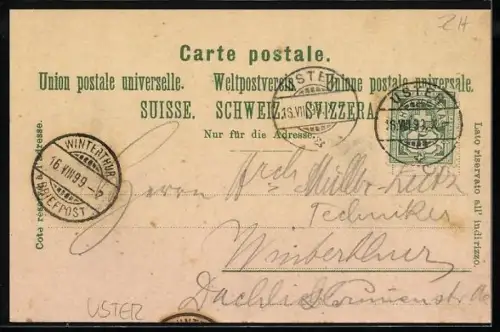 ZH
Carte postale.
Union postale universelle. Weltpostverein. Unione postale universale.
SUISSE. SCHWEIZ. SVIZZERA.
Nur für die Adresse.
USTER
16.VIII
USTER
16.VIII.99.-
WINTERTHUR
16.VIII.99.-
BRIEFPOST
Côté réservé à l'adresse.
Lato riservato all' indirizzo.
Herrn Arch. Müller
Techniker
Winterthur
USTER